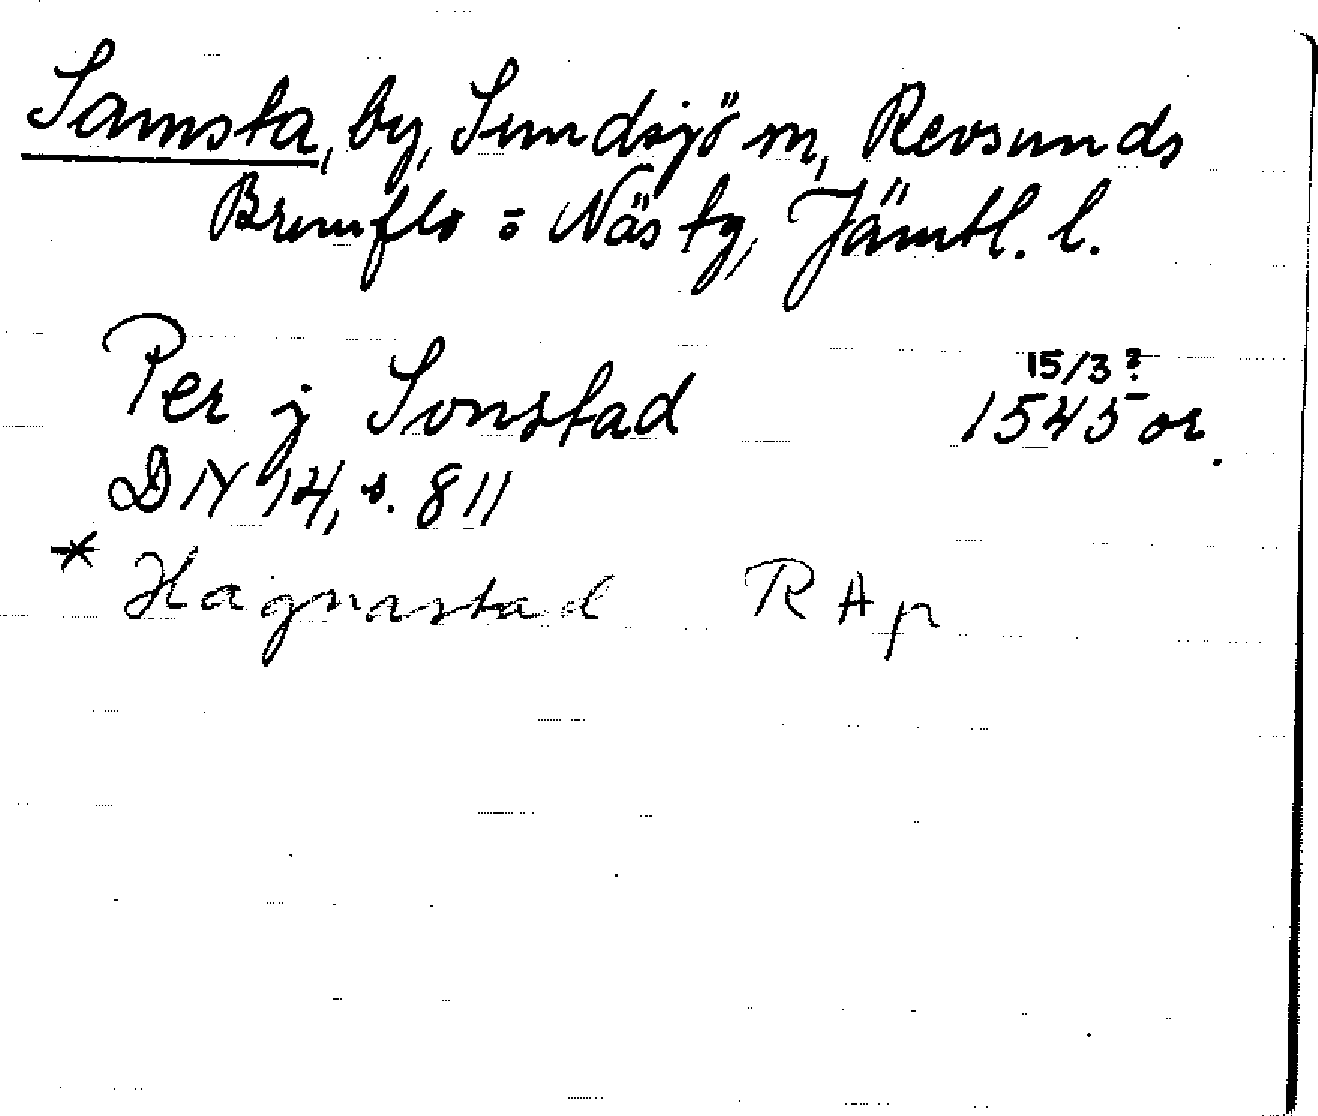 Samsta, by, Sundsjö sn, Revsunds
Brunflo o Näs tg, Jämtl. l.
Per j Sonstad 15/3?
1545 or.
DN 14, s. 811
* Hagnastad RAp